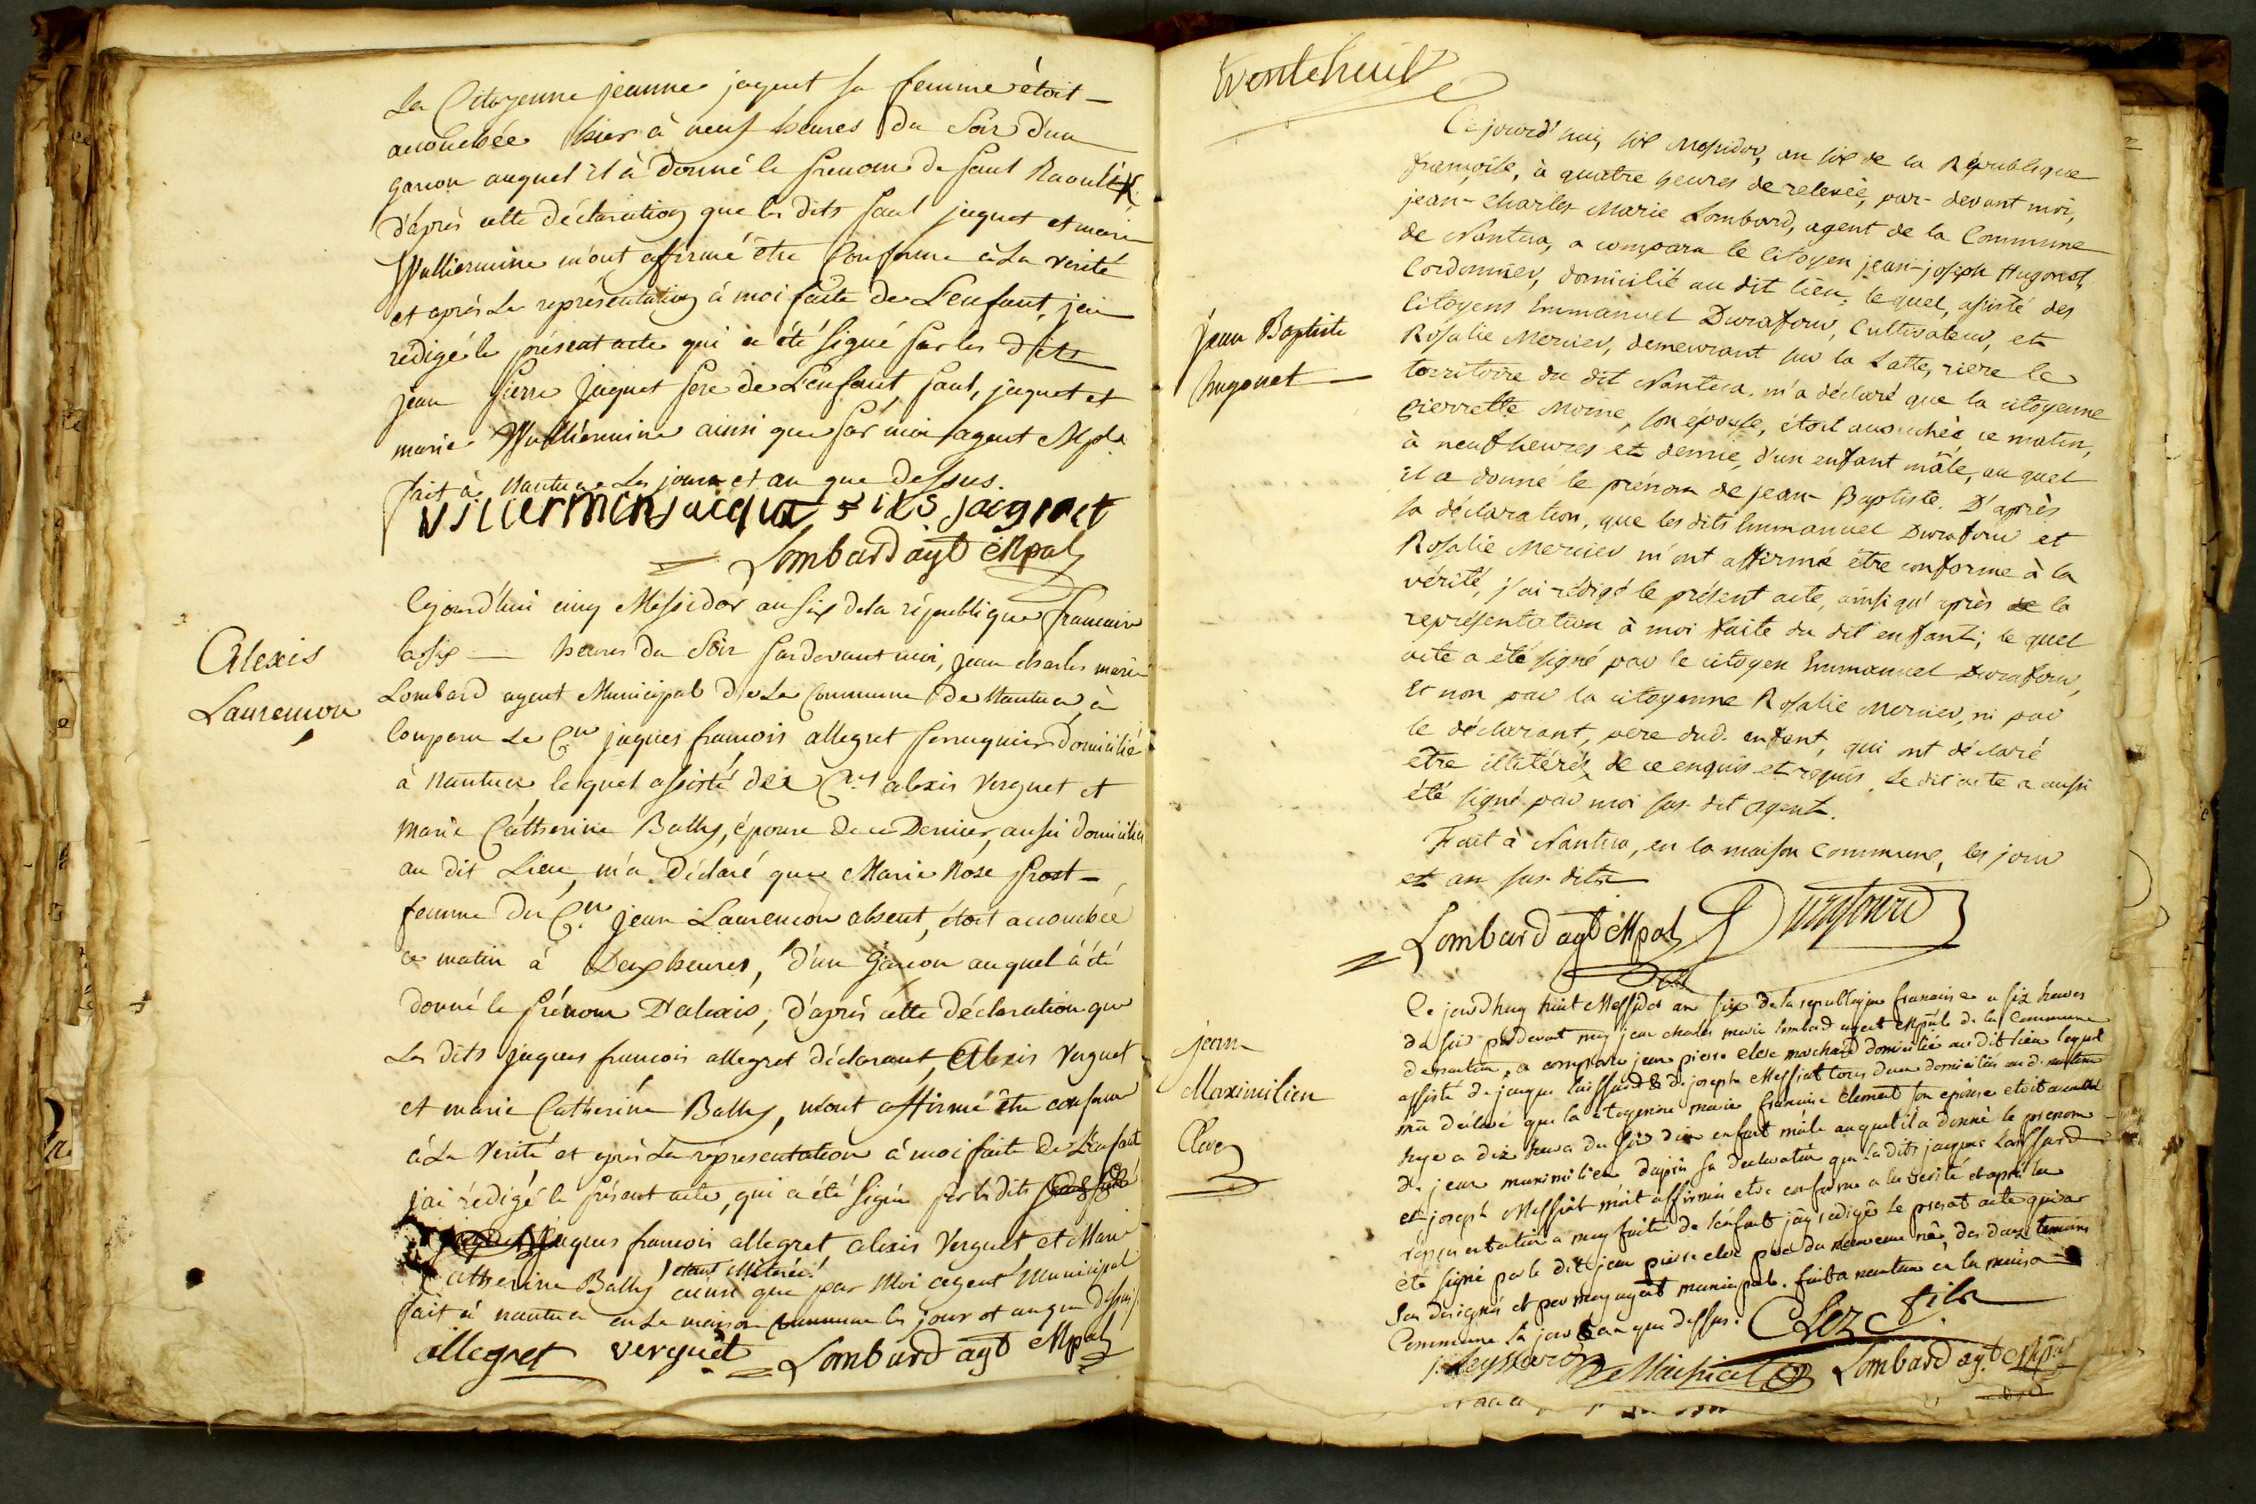 La Citoyenne jeanne jaquet sa femme étoit
accouchée hier à neuf heures du Soir d'un
garcon auquel il à donné le prenom de paul Raoul
d'après cette déclaration que les dits paul jaquet et marie
Wulliermine m'ont affirmé être Conforme à La verité
et après La représentation à moi faite de L'enfant, jai
rédigé le présent acte qui a été signé par les dits
jean pierre jaquet pere de L'enfant, paul, jaquet et
marie Wulliermine ainsi que par moi agent Mpl.
fait à Nantua Les jour et an que dessus.
vilierminjacquet fils jacquet
Lombard agt Mpal
Alexis
Laurencon
Cejourd'hui cinq Messidor an six de la république francaise
a six heures du Soir pardevant moi, jean charles marie
Lombard agent Municipal de La Commune de Nantua, à
Comparu Le Cen jaques francois allegret perruquier domicilié
à Nantua, lequel assisté des Cens alexis verguet et
Marie Cathérine Bally, épouse de ce Dernier, aussi domiciliés
au dit Lieu, m'a Déclaré que Marie Rose prost
femme du Cen jean Laurencon absent, étoit accouchée
ce matin à Deux heures, d'un Garcon auquel à été
donné le prénom D'alexis, d'après cette déclaration que
Les dits jaques francois allegret déclarant, Alexis Verguet
et marie Cathérine Bally, m'ont affirmé être conforme
à La Verité et après La représentation à moi faite de L'enfant
j'ai rédigé le présent acte, qui a été signé par les dits
jaques francois allegret, alexis Verguet, et Marie
Catherine Bally étant illitérée ainsi que par Moi agent Municipal
fait à nantua en La maison Commune les jour et an que dessus.
allegret verguet Lombard agt Mpal
Jean Baptiste
hugonet
Ce jourd'hui, six Messidor, an six de la République
françoise, à quatre heures de relevée, par-devant moi,
jean-Charles Marie Lombard, agent de la Commune
de Nantua, a comparu le Citoyen jean-joseph Hugonet,
Cordonnier, domicilié au dit lieu, le quel, assisté des
Citoyens Emmanuel Durafour, Cultivateur, et
Rosalie Mercier, demeurant sur la Latte, riere le
territoire du dit Nantua, m'a déclaré que la citoyenne
Pierrette Moine, son épouse, étoit accouchée ce matin,
à neuf heures et demie, d'un enfant mâle, au quel
il a donné le prénom de jean-Baptiste. D'après
sa déclaration, que les dits Emmanuel Durafour et
Rosalie Mercier m'ont affirmé être conforme à la
vérité, j'ai rédigé le présent acte, ainsi qu'après de la
représentation à moi faite du dit enfant; le quel
acte a été signé par le citoyen Emmanuel Durafour,
Et non par la citoyenne Rosalie Mercier, ni par
le déclarant, pere dud. enfant, qui ont déclaré
être illitérés de ce enquis et requis. Le dit acte a aussi
été signé par moi sus-dit agent.
Fait à Nantua, en la maison Commune, les jour
et an sus-dits
Lombard agt Mpal Durafourd
jean
Maximilien
Clerc
Ce jourdhuy huit Messidor an six de la republique francaise a six heures
du soir pardevant moy jean charles marie lombard agent Mpale de la Commune
de nantua, a comparu jean pierre clerc marchand domicilié au dit lieu lequel
assisté de jacque laissard & de joseph Messiat tous deux domiciliés aud. nantua
ma declaré que la citoyenne marie francoise clement son epouse etoit accouchée
hyer a dix heures du soir d'un enfant mâle auquel il a donné le prenom
de jean maximilien, dapres sa declaration que les dits jacques laissard
et joseph Messiat mont affirmé etre conforme a la verité et apres la
representation a moy faite de lenfant jay redigé le present acte qui a
été signé par le dit jean pierre clerc pere du nouveau né, des deux temoins
sus designés et par moy agent municipale. fait a nantua en la maison
Commune les jour & an que dessus. Clerc fils
Lombard agt Mpal